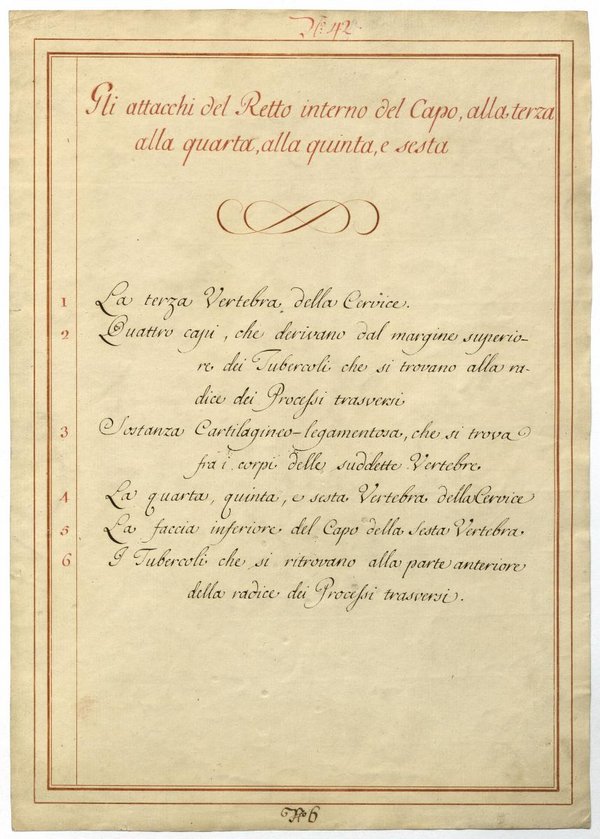 Nº. 42
Gli attacchi del Retto interno del Capo, alla terza
alla quarta, alla quinta, e sesta
1 La terza Vertebra della Cervice.
2 Quattro capi, che derivano dal margine superio-
re dei Tubercoli che si trovano alla ra-
dice dei Processi trasversi
3 Sostanza Cartilagineo-legamentosa, che si trova
frà i corpi delle suddette Vertebre
4 La quarta, quinta, e sesta Vertebra della Cervice
5 La faccia inferiore del Capo della sesta Vertebra
6 I Tubercoli che si ritrovano alla parte anteriore
della radice dei Processi trasversi.
Nº 6